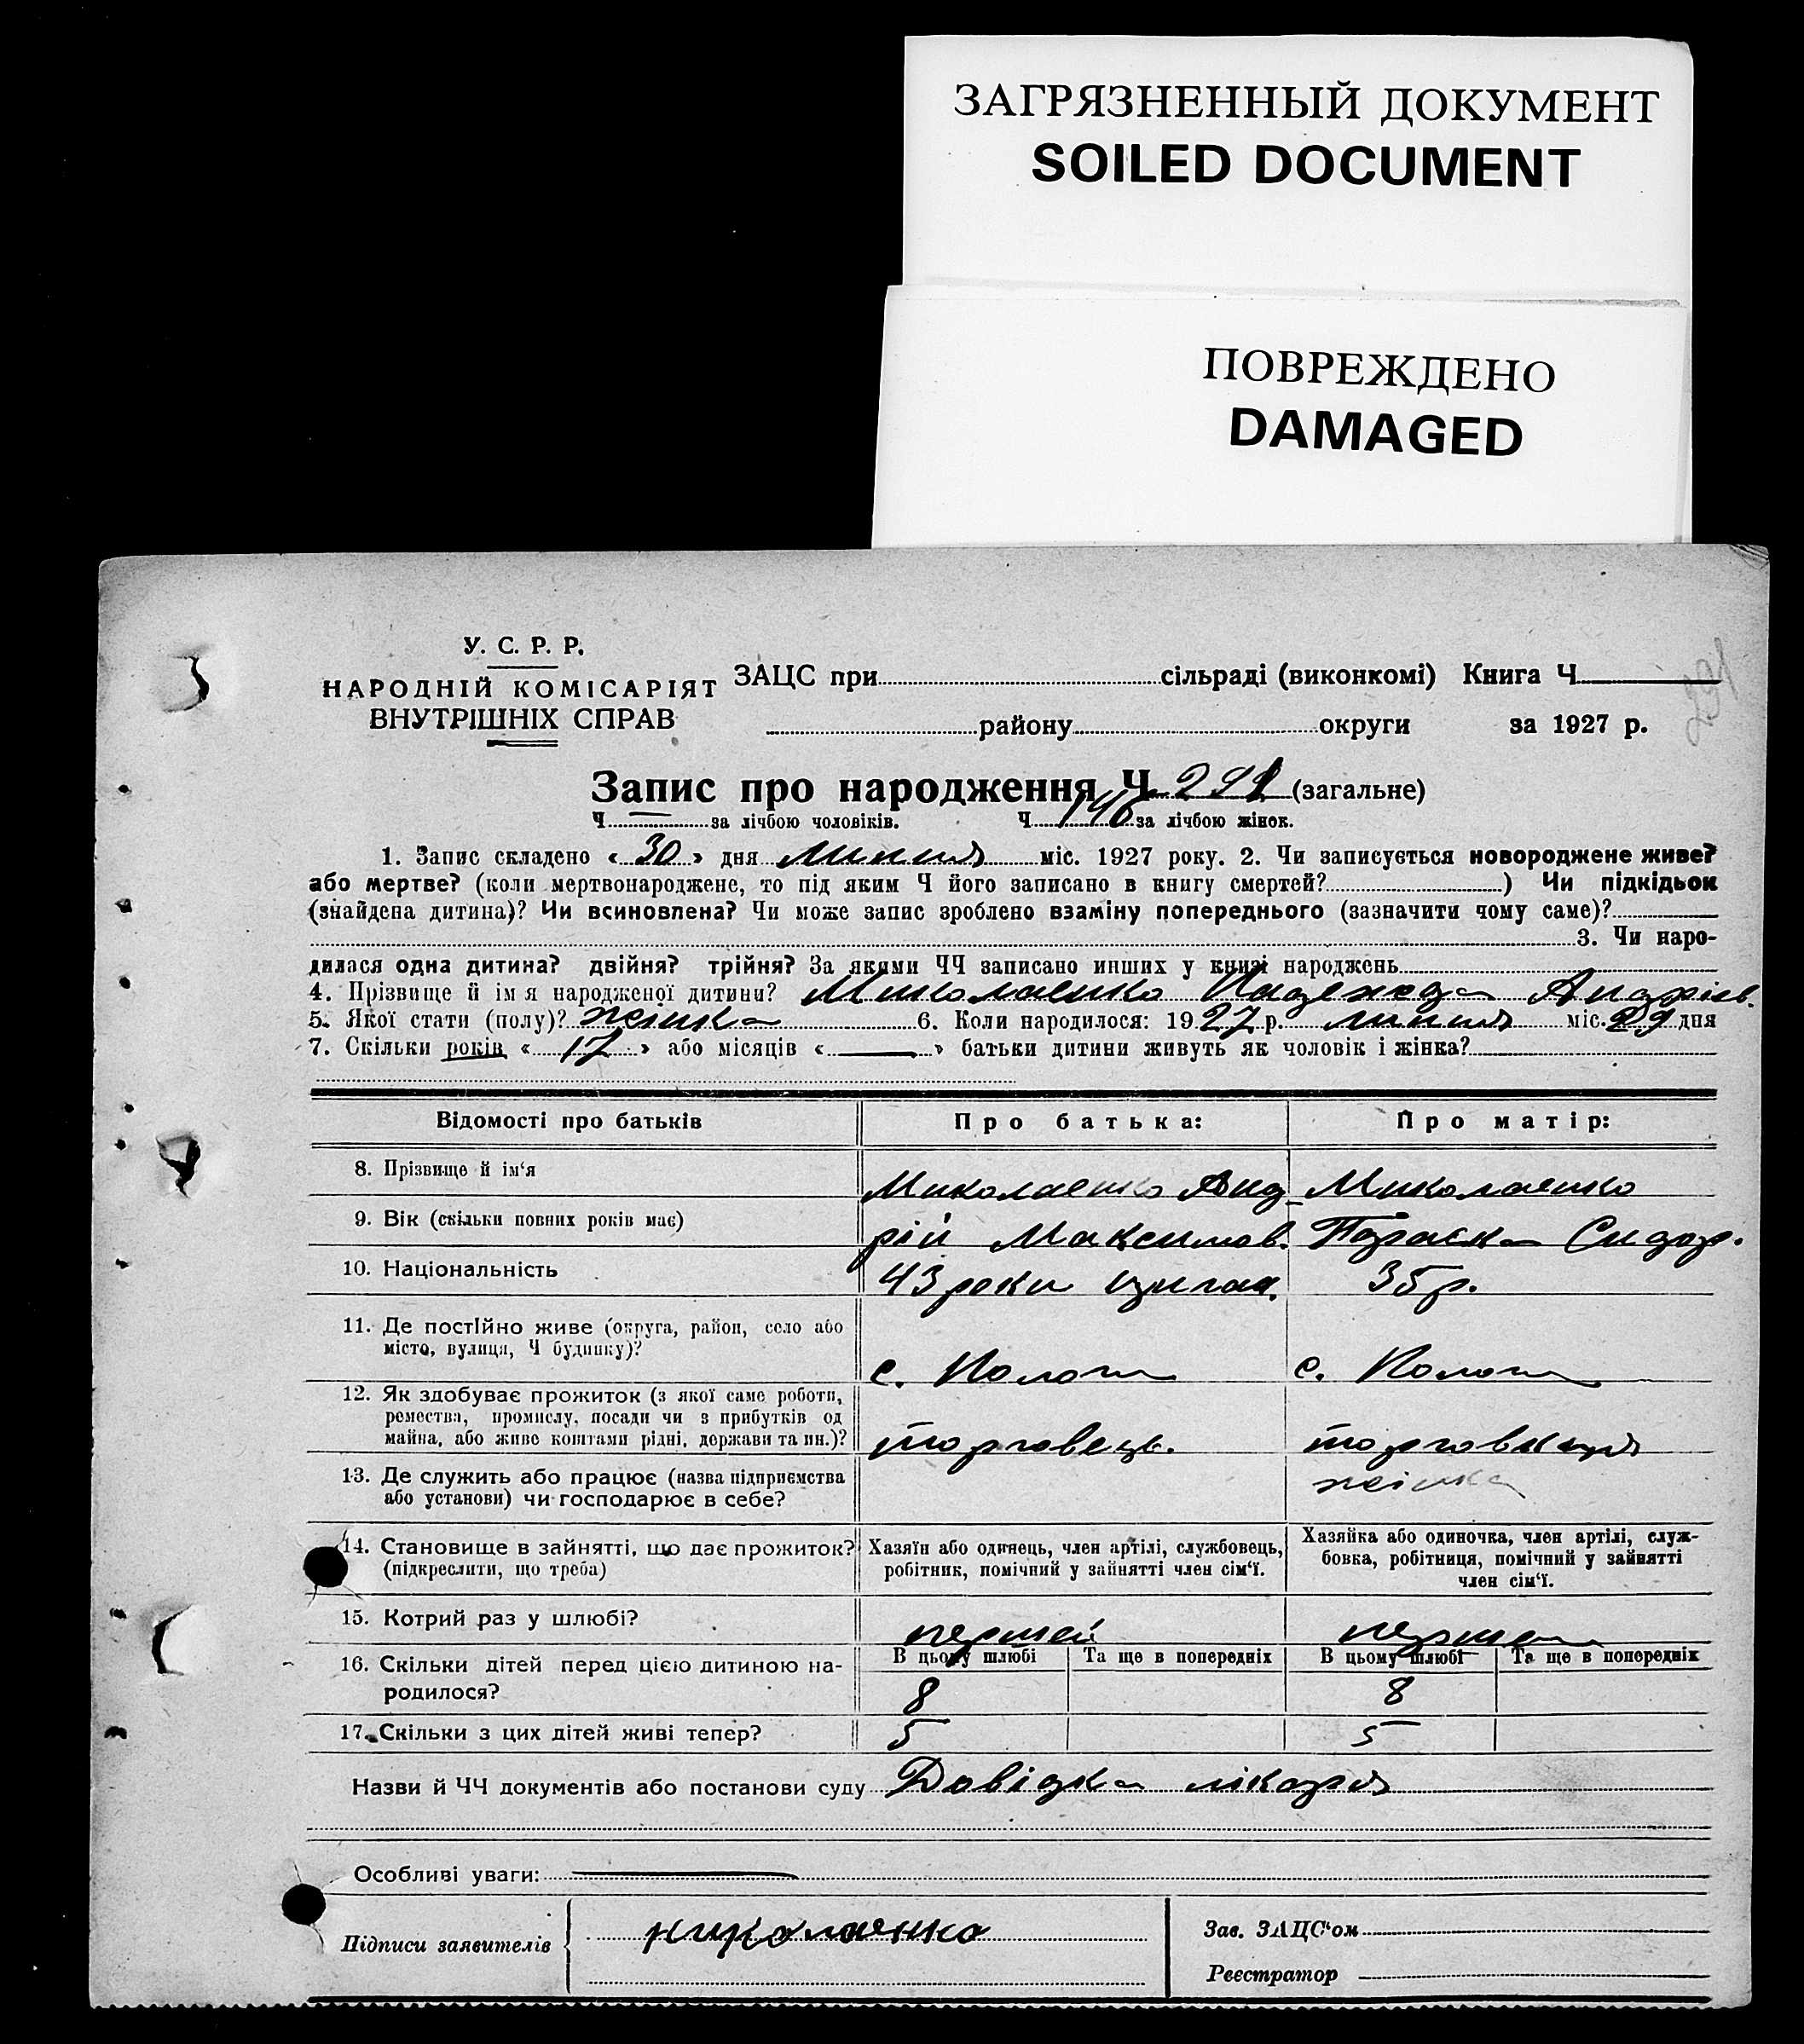 ЗАГРЯЗНЕННЫЙ ДОКУМЕНТ
SOILED DOCUMENT
ПОВРЕЖДЕНО
DAMAGED
У. С. Р. Р.
НАРОДНІЙ КОМІСАРІЯТ
ВНУТРІШНІХ СПРАВ
ЗАЦС при сільраді (виконкомі) Книга Ч
району округи за 1927 р.
Запис про народження Ч 291 (загальне)
Ч — за лічбою чоловіків. Ч 146 за лічбою жінок.
1. Запис складено « 30 » дня липня міс. 1927 року. 2. Чи записується новороджене живе?
або мертве? (коли мертвонароджене, то під яким Ч його записано в книгу смертей? ) Чи підкідьок
(знайдена дитина)? Чи всиновлена? Чи може запис зроблено взаміну попереднього (зазначити чому саме)?
3. Чи наро-
дилася одна дитина? двійня? трійня? За якими ЧЧ записано инших у книзі народжень
4. Прізвище й ім я народженої дитини? Миколаенко Надежда Андріїв.
5. Якої стати (полу)? жінка 6. Коли народилося: 1927 р. липня міс. 29 дня
7. Скільки років « 17 » або місяців « — » батьки дитини живуть як чоловік і жінка?
Відомості про батьків Про батька: Про матір:
8. Прізвище й ім‘я Миколаенко Анд- Миколаенко
9. Вік (скільки повних років має) рій Максимов. Параска Сидор.
10. Національність 43 роки циган. 35 р.
11. Де постІйно живе (округа, район, село або
місто, вулиця, Ч будинку)? с. Пологи с. Пологи
12. Як здобуває прожиток (з якої саме роботи,
ремества, промислу, посади чи з прибутків од
майна, або живе коштами рідні, держави та ин.)? торговець. торговкиця
13. Де служить або працює (назва підприємства
або установи) чи господарює в себе? жінка
14. Становище в зайнятті, що дає прожиток?
(підкреслити, що треба)
Хазяїн або одинець, член артілі, службовець,
робітник, помічний у зайнятті член сім‘ї.
Хазяйка або одиночка, член артілі, служ-
бовка, робітниця, помічний у зайнятті
член сім‘ї.
15. Котрий раз у шлюбі? перший перша
16. Скільки дітей перед цією дитиною на-
родилося?
В цьому шлюбі Та ще в попередніх В цьому шлюбі Та ще в попередніх
8 8
17. Скільки з цих дітей живі тепер? 5 5
Назви й ЧЧ документів або постанови суду Довідка лікаря
Особливі уваги:
Підписи заявителів
Зав. ЗАЦС‘ом
Реєстратор